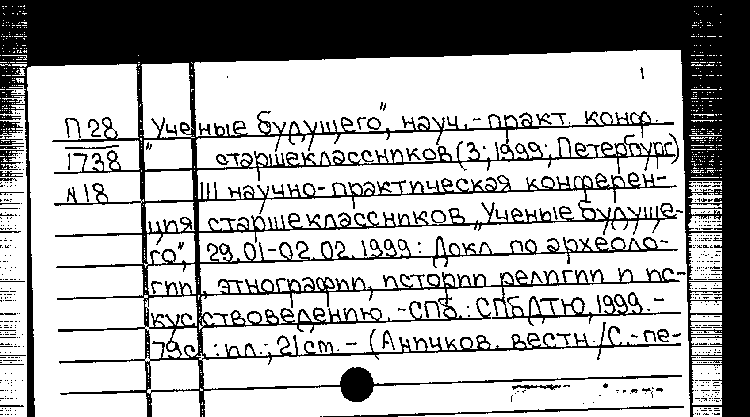 1
П28 "Ученые будущего", науч.-практ. конф.
1738 старшеклассников (3; 1999; Петербург)
N18 III научно-практическая конферен-
ция старшеклассников „Ученые будуще-
го", 29.01-02.02.1999: Докл. по археоло-
гии, этнографии, истории религии и ис-
кусствоведению. -СПб.: СПбДТЮ, 1999.-
79с.: ил.; 21см. - (Аничков. вестн. /С.-пе-